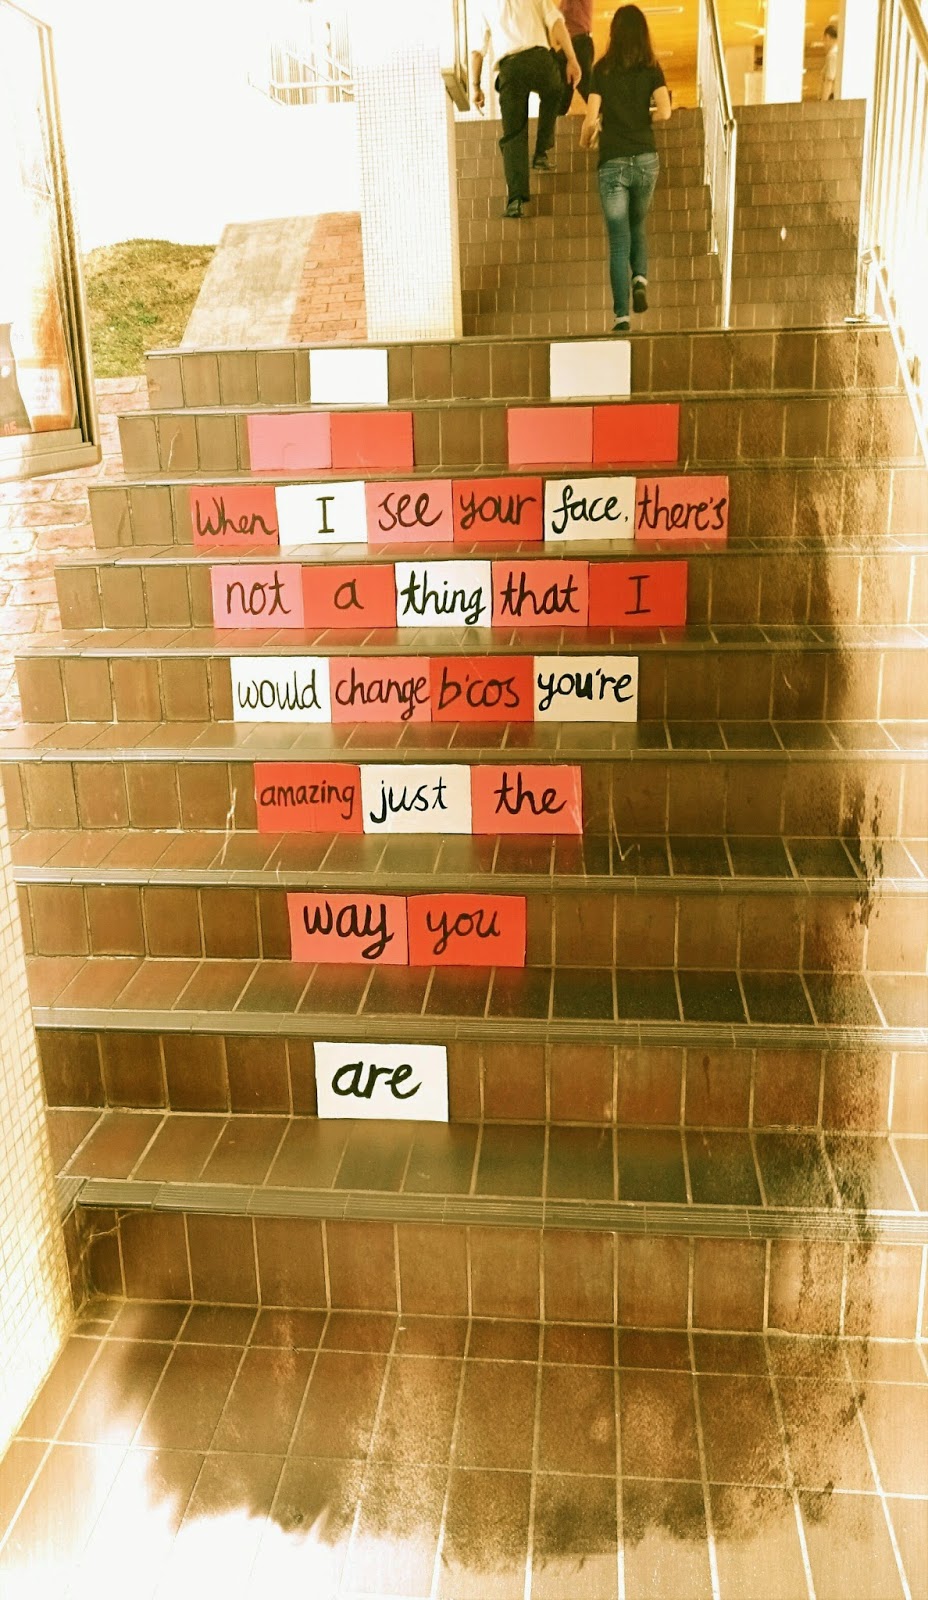 When I see your face, there's
not a thing that I
would change b'cos you're
amazing just the
way you
are